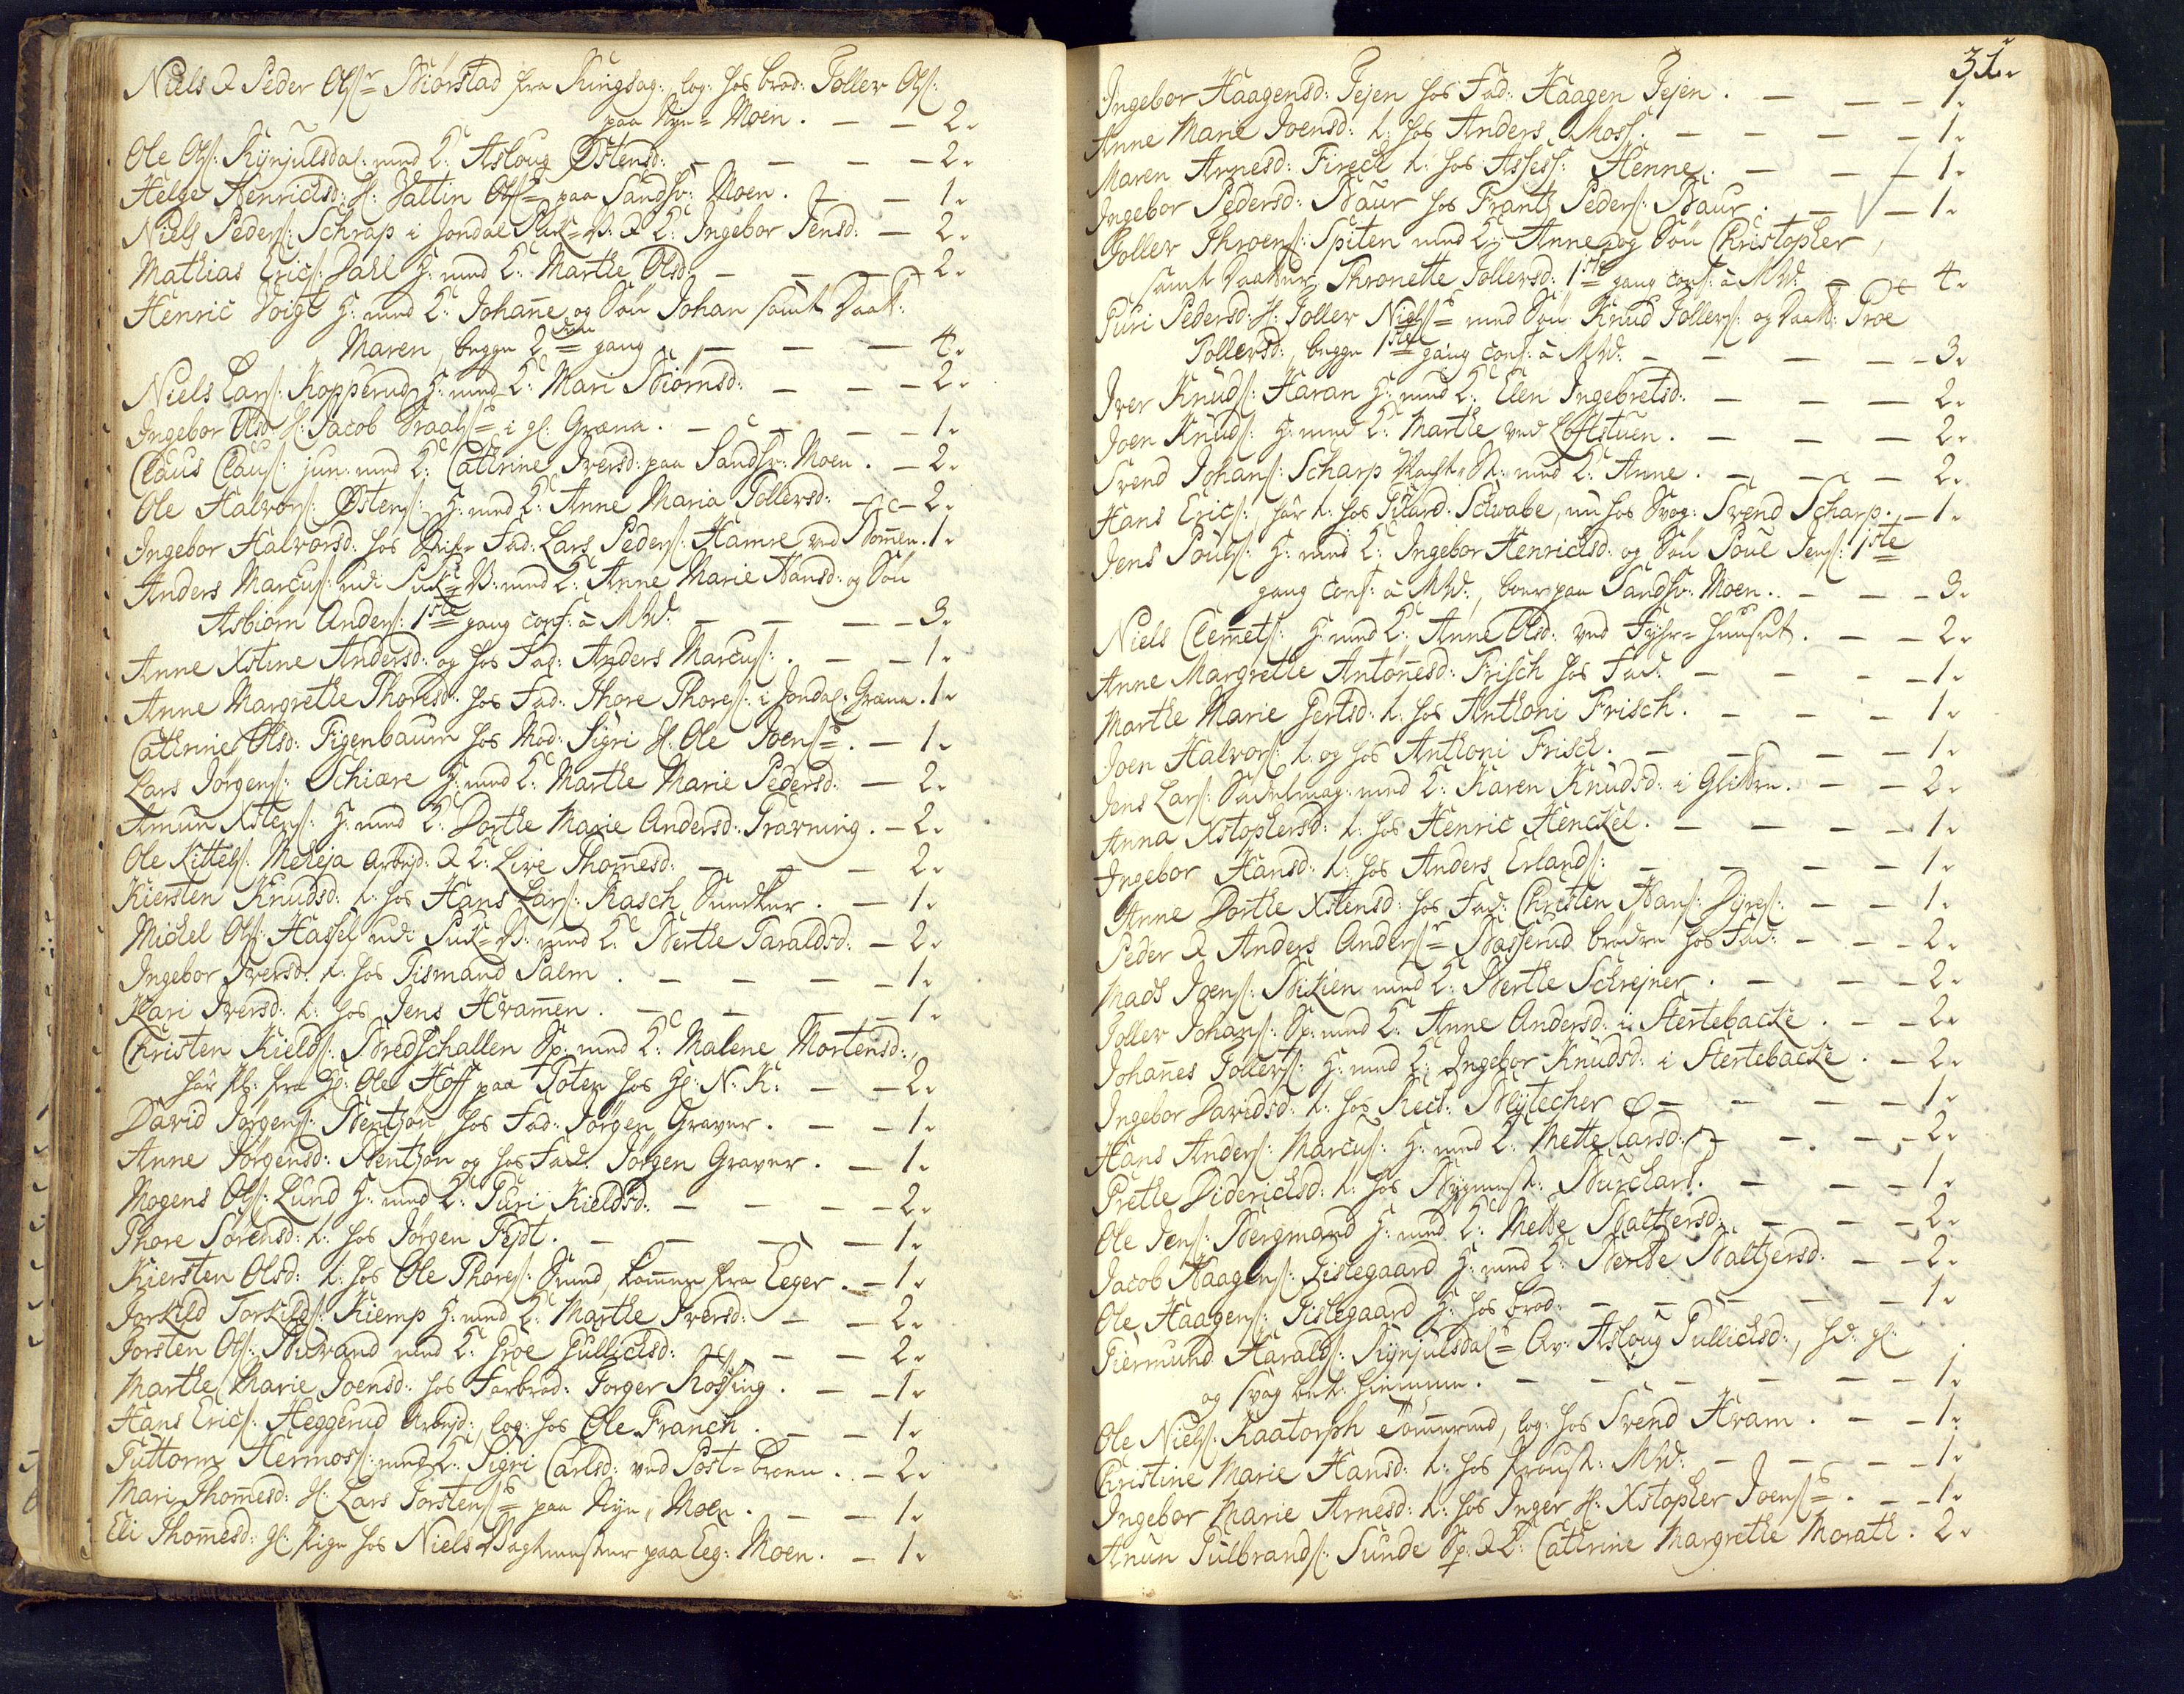 Niels & Peder Ols:r Biørstad fra Ringsag: log: hos brod: Toller Ols:
paa Nye-Moen. — — 2.
Ole Ols: Rÿnjulsdal: med K: Asloug Østensd: — — — 2.
Helge Henrichsd: H: Hattin Ols: paa Sandsv: Moen. — — 1.
Niels Peders: Schrap i Jondal & K: Ingebor Jensd: — 2.
Mathias Erics: Dahl G: med K: Marthe Olsd: — — — 2.
Henric Voigt G: med K: Johane og Søn Johan samt Daat:
Maren, begge 2den gang — — — 4.
Niels Lars: Kopperud G: med K: Mari Biørnsd: — — — 2.
Ingebor Olsd: H: Jacob i gl: Græna. — — — 1.
Claus Claus: jun: med K: Cathrine Iversd: paa Sandsv: Moen. — 2.
Ole Halvors: Østens: G: med K: Anne Maria Tollersd: — — 2.
Ingebor Halvorsd: hos Stif-Fad: Lars Peders: Hamre ved Bomen. 1.
Anders Marcus: med K: Anne Marie Hansd: og Søn
Asbiørn Anders: 1ste gang conf: a MW: — — — 3.
Anne Xstine Andersd: og hos Fad: Anders Marcus: . — — 1.
Anne Margrethe Thoresd: hos Fad: Thore Thores: i Jondal: Græna. 1.
Cathrine Olsd: Figenbaum hos Mod: Sigri H: Ole Joens: . — 1.
Lars Jørgens: Schiære G: med K: Marthe Marie Pedersd: — 2.
Amun Xstens: G: med K: Dorthe Marie Andersd: Travning. — 2.
Ole Kittels: Meheja Arbejd: & K: Live Thomesd: — — — 2.
Kiersten Knudsd: t: hos Hans Lars: Rasch . — 1.
Michel Ols: Hassel med K: Berthe Taraldsd: — 2.
Ingebor Iversd: t: hos Tismand Palm. — — — 1.
Kari Iversd: t: hos Jens Hramen. — — — 1.
Christen Kields: Bredschallen Sp: med K: Malene Mortensd:,
fra Hr: Ole Hoff paa Toten hos Hr: N: K: — — 2.
David Jørgens: Bentzon hos Fad: Jørgen Graver. — — 1.
Anne Jørgensd: Bentzon og hos Fad: Jørgen Graver. — 1.
Mogens Ols: Lund G: med K: Guri Kieldsd: — — — 2.
Thore Sørensd: t: hos Jørgen Fejdt. — — — 1.
Kiersten Olsd: t: hos Ole Thores: Smed, komen fra Eeger. — 1.
Torkild Torkilds: Kiemp G: med K: Marthe Iversd: — — 2.
Torsten Ols: med K: Groe Gullichsd: — — 2.
Marthe Marie Joensd: hos Farbrod: Torger Rossing. — — 1.
Hans Erics: Heggerud Arbejd:, log: hos Ole Franch. — — 1.
Guttorm Hermos: med K: Sigri Carlsd: ved Post-Broen. — 2.
Mari Thomesd: H: Lars Torstens: paa Nye-Moen. — — 1.
Eli Thomesd: gl: Pige hos Niels Vagtmester paa Eeg: Moen. — 1.
31.
Ingebor Haagensd: Tejen hos Fad: Haagen Tejen. — — — 1.
Anne Marie Joensd: t: hos Anders Moss: — — — — 1.
Maren Arnesd: Firech t: hos Assess: Henne. — — — 1.
Ingebor Pedersd: Baur hos Frantz Peders: Baur. — — 1.
Toller Throens: Spiten med K: Anne, og Søn Christopher,
samt Daatter Thronette Tollersd: 1ste gang conf: a MW: — — 4.
Guri Pedersd: H: Toller Niels: med Søn Knud Tollers: og Daat: Groe
Tollersd:, begge 1ste gang conf: a MW: — — — — 3.
Iver Knuds: Haran G: med K: Elen Ingebretsd: — — — 2.
Joen Knuds: G: med K: Marthe ved Loftstuen. — — — 2.
Svend Johans: Scharp med K: Anne. — — — 2.
Hans Erics:, før t: hos Schwabe, nu hos Svog: Svend Scharp. — 1.
Jens Pouls: G: med K: Ingebor Henrichsd: og Søn Poul Jens: 1ste
gang conf: a MW:, boer paa Sandsv: Moen. — — — 3.
Niels Clemets: G: med K: Anne Olsd: ved Fyhr-Huuset. — — 2.
Anne Margrethe Antonesd: Frisch hos Fad: — — — 1.
Marthe Marie Gertsd: t: hos Anthoni Frisch. — — — 1.
Joen Halvors: t. og hos Anthoni Frisch. — — — 1.
Jens Lars: Sadelmag: med K: Karen Knudsd: i Glitten. — — 2.
Anna Xstophersd: t: hos Henric Henckel. — — — — 1.
Ingebor Hansd: t: hos Anders Erlands: — — — — 1.
Anne Dorthe Xstensd: hos Fad: Christen Hans: Dÿres: — — 1.
Peder & Anders Anders:r Basserud brødre hos Fad: — — — 2.
Mads Joens: Bikien med K: Berthe Schrejner. — — — 2.
Toller Johans: Sp: med K: Anne Andersd: i Stertebacke. — — 2.
Johanes Tollers: G: med K: Ingebor Knudsd: i Stertebacke. — 2.
Ingebor Davidsd: t: hos Rect: Blÿtecher — — — 1.
Hans Anders: Marcus: G: med K: Mette Larsd: — — — 2.
Grethe Diderichsd: t: hos Bygmest: Burchart. — — — 1.
Ole Jens: Bergmand G: med K: Mette Baltzersd: — — — 2.
Jacob Haagens: Tislegaard G: med K: Berthe Baltzersd: — — 2.
Ole Haagens: Tislegaard G: hos brod: — — — — 1.
Giermund Haralds: Rÿnjulsdal: Qv: Asloug Gullichsd:, hd: gl:
og svag bet: hiemme. — — — — — 1.
Ole Niels: Kaatorph Tømermd, log: hos Svend Hram. — — 1.
Christine Marie Hansd: t: hos Provst: MW: — — — 1.
Ingebor Marie Arnesd: t: hos Inger H: Xstopher Joens: . — — 1.
Anun Gulbrands: Sunde Sp: & K: Cathrine Margrethe Morath. 2.